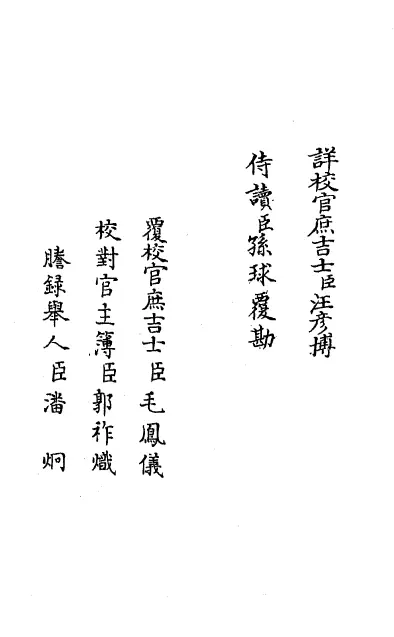 詳校官庶吉士臣汪彥博
侍讀臣孫球覆勘
覆校官庶吉士臣毛鳳儀
校對官主簿臣郭祚熾
謄錄舉人臣潘炯